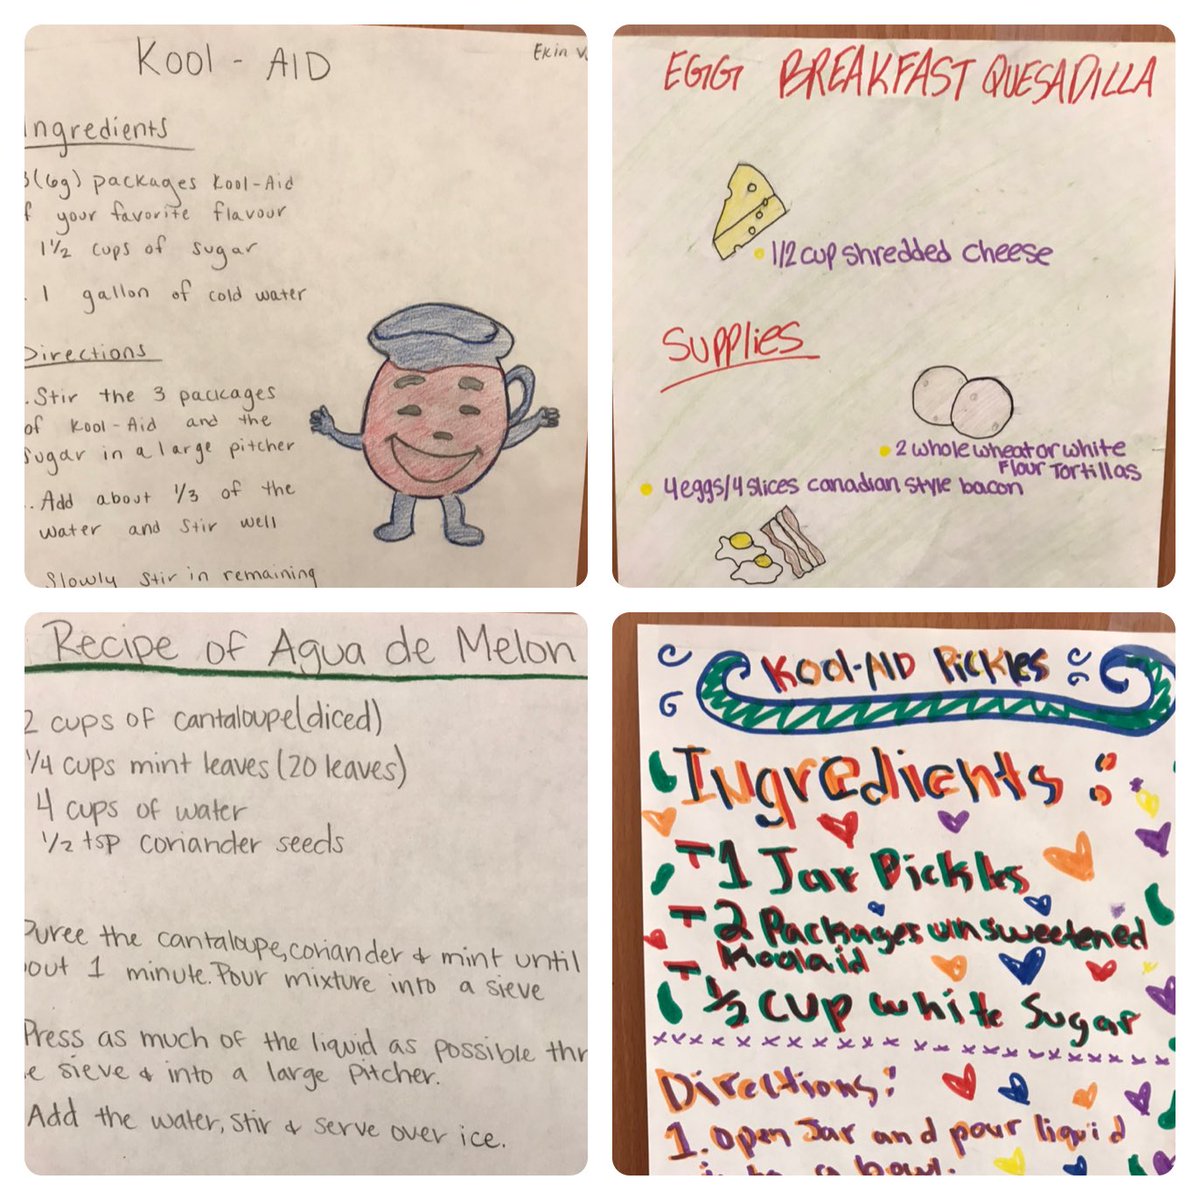 Kool - AID
Ekin V.
Ingredients
3(6g) packages Kool-Aid
f your favorite flavour
1½ cups of sugar
. 1 gallon of cold water
Directions
.Stir the 3 packages
of Kool-Aid and the
sugar in a large pitcher
..Add about 1/3 of the
water and stir well
Slowly stir in remaining
EGG BREAKFAST QUESADILLA
1/2 cup shredded cheese
Supplies
2 whole wheat or white
flour Tortillas
4 eggs/4 slices canadian style bacon
Recipe of Agua de Melon
2 cups of cantaloupe(diced)
1/4 cups mint leaves (20 leaves)
4 cups of water
1/2 tsp coriander seeds
Puree the cantaloupe, coriander & mint until
out 1 minute. Pour mixture into a sieve
Press as much of the liquid as possible thr
e sieve & into a large Pitcher.
Add the water, stir & serve over ice.
Kool-AID Pickles
Ingredients:
-1 Jar Pickles
-2 Packages unsweetened
Koolaid
-½ CUP white Sugar
Directions:
1. Open Jar and pour liquid
into a bowl.